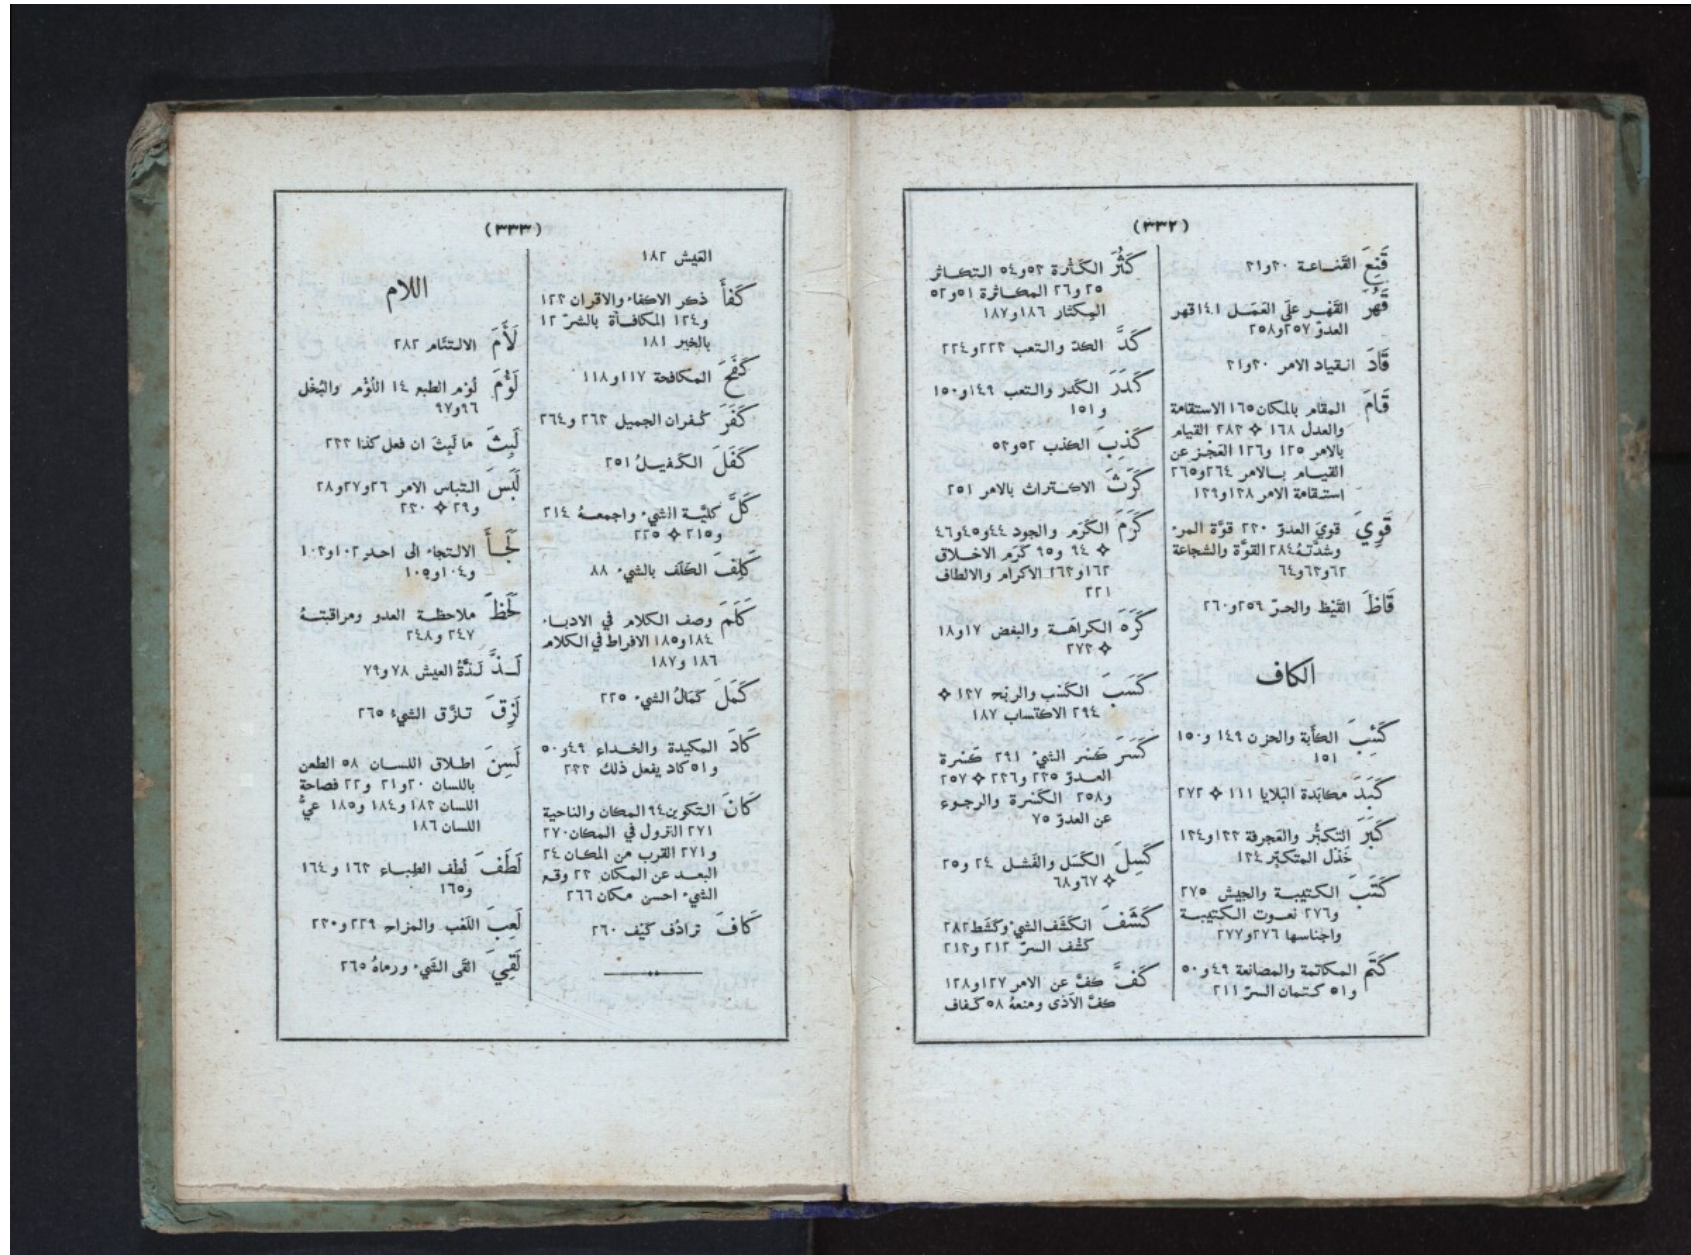 (٣٣٢)
قَنِعَ القَناعة ٢٠ و٢١
قَهَرَ القَهْر على العَمَل ١٤١ قهر
العدوّ ٢٥٧ و٢٥٨
قَادَ انقياد الامر ٢٠ و٢١
قَامَ المقام بالمكان ١٦٥ الاستقامة
والعدل ١٦٨ ✧ ٢٨٣ القيام
بالامر ١٢٥ و١٢٦ العَجْز عن
القيام بالامر ٢٦٤ و٢٦٥
استقامة الامر ١٢٨ و١٢٩
قَوِيَ قويَ العدوّ ٢٢٠ قوَّة المرء
وشدَّتهُ ٢٨٤ القوَّة والشجاعة
٦٢ و٦٣ و٦٤
قَاظَ القَيْظ والحرّ ٢٥٩ و٢٦٠
الكاف
كَئِبَ الكآبة والحزن ١٤٩ و١٥٠
١٥١
كَبَدَ مكابَدة البلايا ١١١ ✧ ٢٧٢
كَبَّرَ التكبُّر والعجرفة ١٢٢ و١٢٤
خَذْل المتكبّر ١٢٤
كَتَبَ الكتيبة والجيش ٢٧٥
و٢٧٦ نعوت الكتيبة
واجناسها ٢٧٦ و٢٧٧
كَتَم المكاتمة والمصانعة ٤٩ و٥٠
و٥١ كتمان السرّ ٢١١
كَثُرَ الكَثْرة ٥٣ و٥٤ التكاثر
٢٥ و٢٦ المكاثرة ٥١ و٥٢
المِكثار ١٨٦ و١٨٧
كَدَّ الكدّ والتعب ٢٢٣ و٢٢٤
كَدَرَ الكَدَر والتعب ١٤٩ و١٥٠
و١٥١
كَذِبَ الكذب ٥٢ و٥٣
كَرَثَ الاكتراث بالامر ٢٥١
كَرَمَ الكَرَم والجود ٤٤ و٤٥ و٤٦
✧ ٩٤ و٩٥ كرَم الاخلاق
١٦٢ و٢٦٣ الاكرام والالطاف
٢٢١
كَرَه الكراهَة والبغض ١٧ و١٨
✧ ٢٧٣
كَسَبَ الكَسْب والربْح ١٣٧ ✧
٢٩٤ الاكتساب ١٨٧
كَسَرَ كَسْر الشيْ ٢٩١ كَسْرة
العدوّ ٢٣٥ و٢٣٦ ✧ ٢٥٧
و٢٥٨ الكَسْرة والرجوع
عن العدوّ ٧٥
كَسِلَ الكَسَل والفَشل ٢٤ و٢٥
✧ ٦٧ و٦٨
كَشَفَ انكَشَف الشيْ وكَشَط ٢٨٢
كشْف السرّ ٢١٢ و٢١٣
كَفَّ كفّ عن الامر ١٢٧ و١٢٨
كفّ الاَذى ومنعهُ ٥٨ كَفاف
(٣٣٣)
العَيش ١٨٢
كَفَأَ ذكر الاكفاء والاقران ١٢٣
و١٢٤ المكافأة بالشرّ ١٢
بالخير ١٨١
كَفَحَ المكافحة ١١٧ و١١٨
كَفَرَ كُفران الجميل ٢٦٣ و٢٦٤
كَفَلَ الكَفيلُ ٢٥١
كَلَّ كليَّة الشيء واجمعهُ ٢١٤
و٢١٥ ✧ ٢٢٥
كَلِفَ الكَلَف بالشيء ٨٨
كَلَمَ وصف الكلام في الادباء
١٨٤ و١٨٥ الافراط في الكلام
١٨٦ و١٨٧
كَمَلَ كَمالُ الشيء ٢٢٥
كَادَ المكيدة والخداع ٤٩ و٥٠
و٥١ كاد يفعل ذلك ٢٣٣
كَانَ التكوين ٩٤ المكان والناحية
٢٧١ النزول في المكان ٢٧٠
و٢٧١ القرب من المكان ٢٤
البعد عن المكان ٢٣ وقع
الشيء احسن مكان ٢٦٦
كَافَ ترادُف كيْف ٢٦٠
اللام
لَأَمَ الالتئام ٢٨٢
لَؤُمَ لؤم الطبع ١٤ اللُؤْم والبُخْل
٩٦ و٩٧
لَبِثَ ما لَبِثَ ان فعل كذا ٢٣٣
لَبَسَ التباس الامر ٢٦ و٢٧ و٢٨
و٢٩ ✧ ٢٢٠
لَجَأَ الالتجاء الى احدٍ ١٠٢ و١٠٣
و١٠٤ و١٠٥
لَحَظَ ملاحظة العدو ومراقبتهُ
٢٤٧ و٢٤٨
لَذَّ لَذَّةُ العيش ٧٨ و٧٩
لَزِقَ تلزَّق الشيءُ ٢٦٥
لَسِنَ اطلاق اللسان ٥٨ الطعن
باللسان ٢٠ و٢١ و٢٢ فصاحة
اللسان ١٨٣ و١٨٤ و١٨٥ عيُّ
اللسان ١٨٦
لَطَفَ لُطْف الطِباع ١٦٣ و١٦٤
و١٦٥
لَعِبَ اللَعْب والمزاح ٢٢٩ و٢٣٠
لَقِيَ القَى الشَيء ورماهُ ٢٦٥